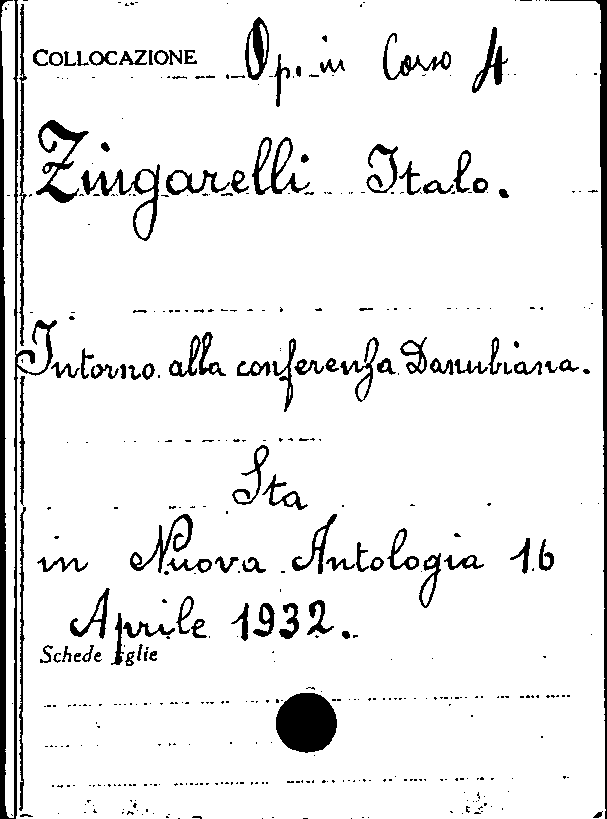 COLLOCAZIONE Op. in Corso 4
Zingarelli Italo.
Intorno alla conferenza Danubiana.
Sta
in Nuova Antologia 16
Aprile 1932.
Schede figlie